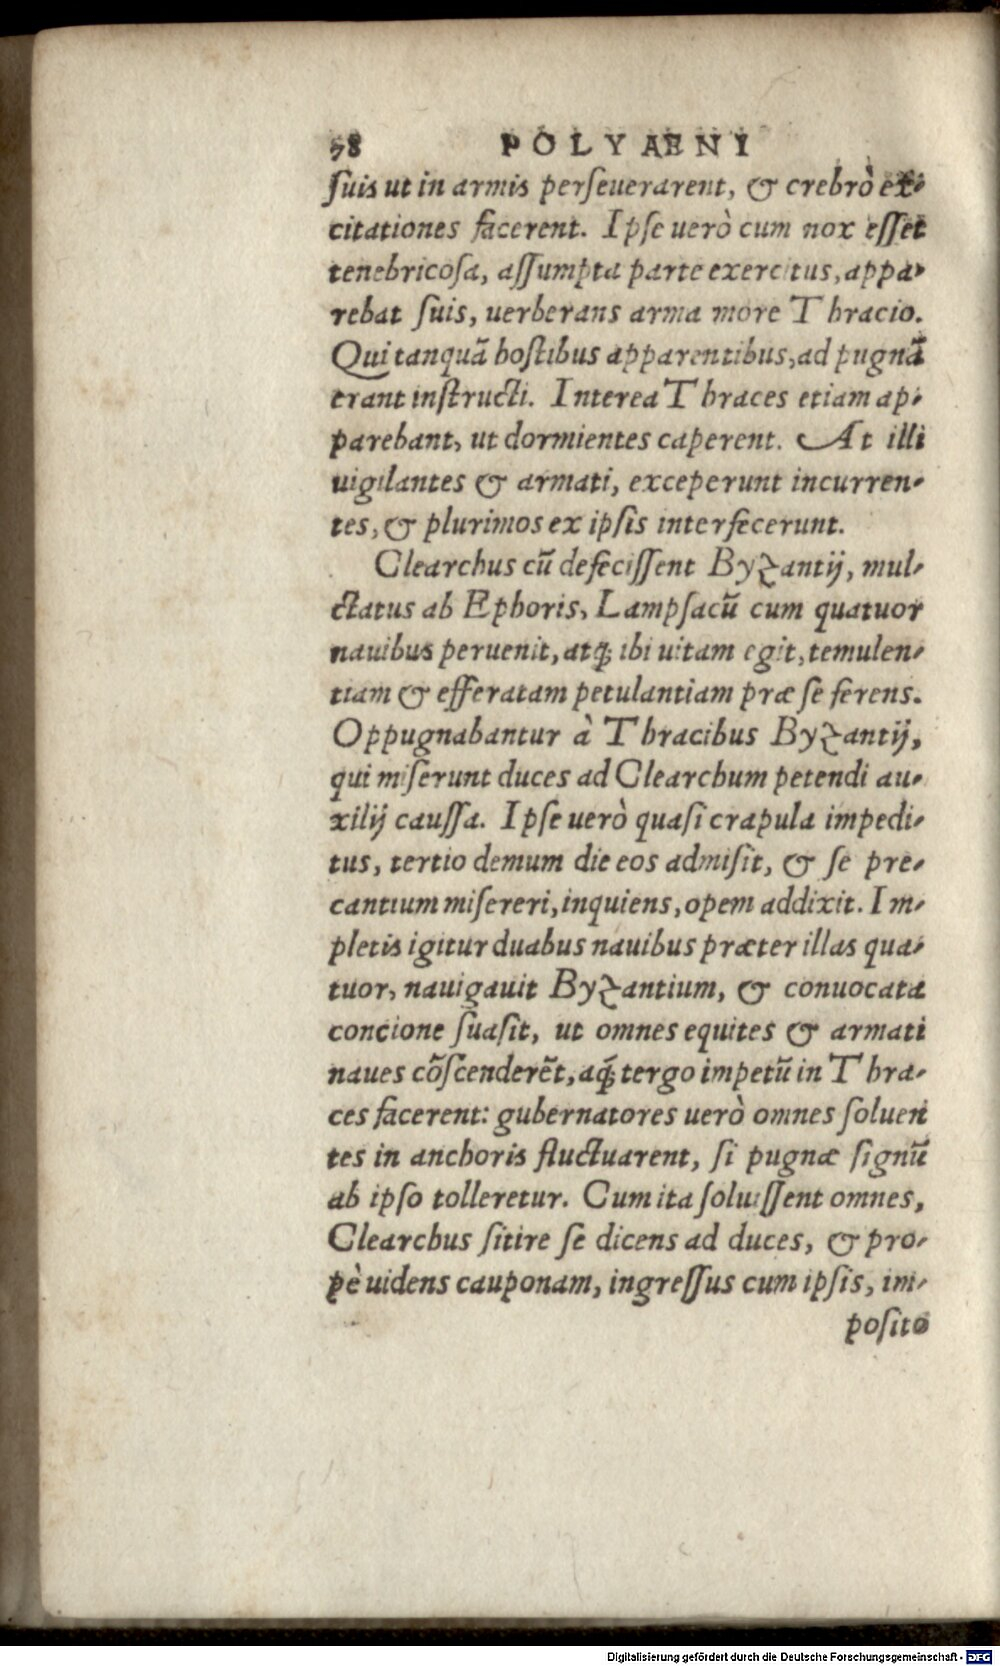 78 POLYAENI
suis ut in armis perseuerarent, & crebrò ex-
citationes facerent. Ipse uerò cum nox esset
tenebricosa, assumpta parte exercitus, appa-
rebat suis, uerberans arma more Thracio.
Qui tanquã hostibus apparentibus, ad pugnã
erant instructi. Interea Thraces etiam ap-
parebant, ut dormientes caperent. At illi
uigilantes & armati, exceperunt incurren-
tes, & plurimos ex ipsis interfecerunt.
Clearchus cũ defecissent Byzantij, mul-
ctatus ab Ephoris, Lampsacũ cum quatuor
nauibus peruenit, atq; ibi uitam egit, temulen-
tiam & efferatam petulantiam præ se ferens.
Oppugnabantur à Thracibus Byzantij,
qui miserunt duces ad Clearchum petendi au-
xilij caussa. Ipse uerò quasi crapula impedi-
tus, tertio demum die eos admisit, & se pre-
cantium misereri, inquiens, opem addixit. Im-
pletis igitur duabus nauibus præter illas qua-
tuor, nauigauit Byzantium, & conuocata
concione suasit, ut omnes equites & armati
naues cõscenderẽt, aq; tergo impetũ in Thra-
ces facerent: gubernatores uerò omnes soluen
tes in anchoris fluctuarent, si pugnæ signũ
ab ipso tolleretur. Cum ita soluissent omnes,
Clearchus sitire se dicens ad duces, & pro-
pè uidens cauponam, ingressus cum ipsis, im-
posito
Digitalisierung gefördert durch die Deutsche Forschungsgemeinschaft - DFG